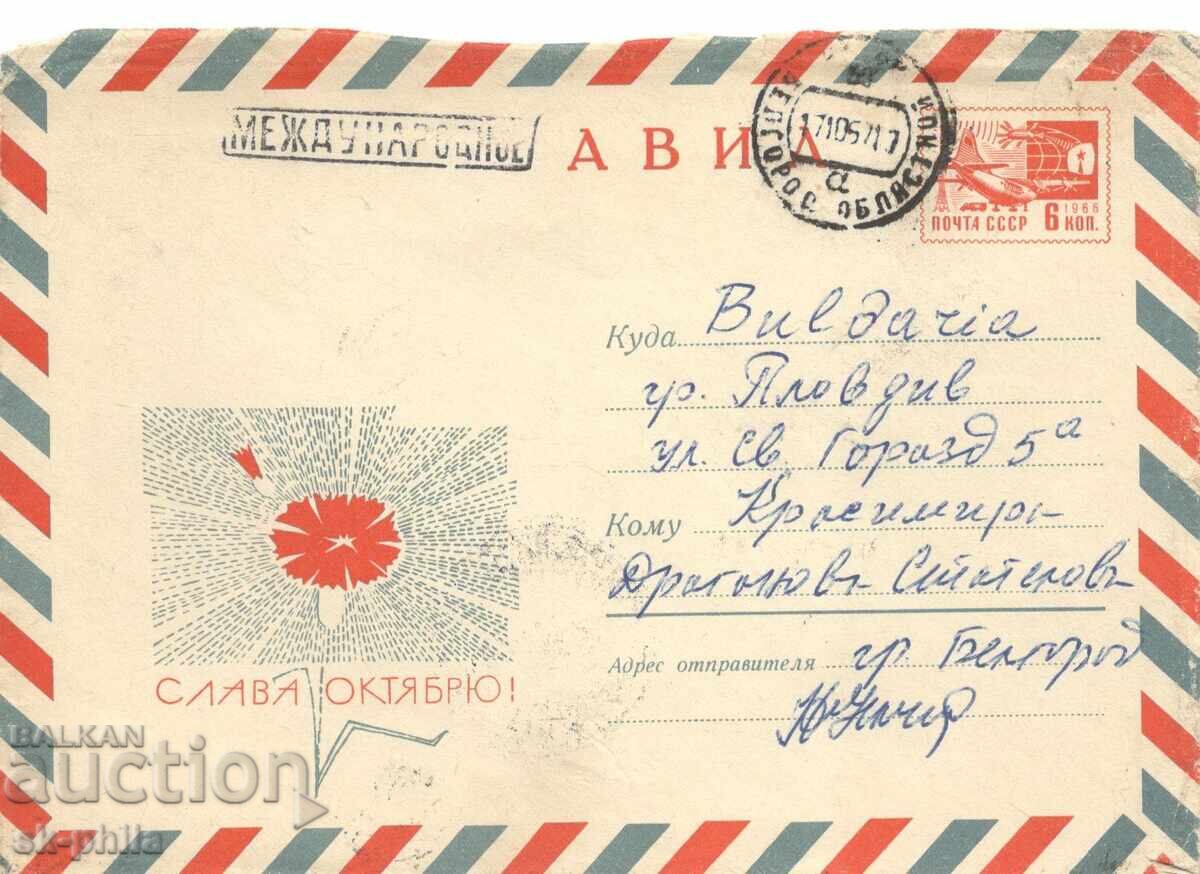 МЕЖДУНАРОДНОЕ
АВИА
БЕЛГОРОД ОБЛАСТНОЙ
а
1966
ПОЧТА СССР 6 КОП.
Куда
гр. Пловдив
ул. Св. Горазд 5а
Кому Красимира
Адрес отправителя гр. Белгород
СЛАВА ОКТЯБРЮ!
BALKAN
auction
sk-phila